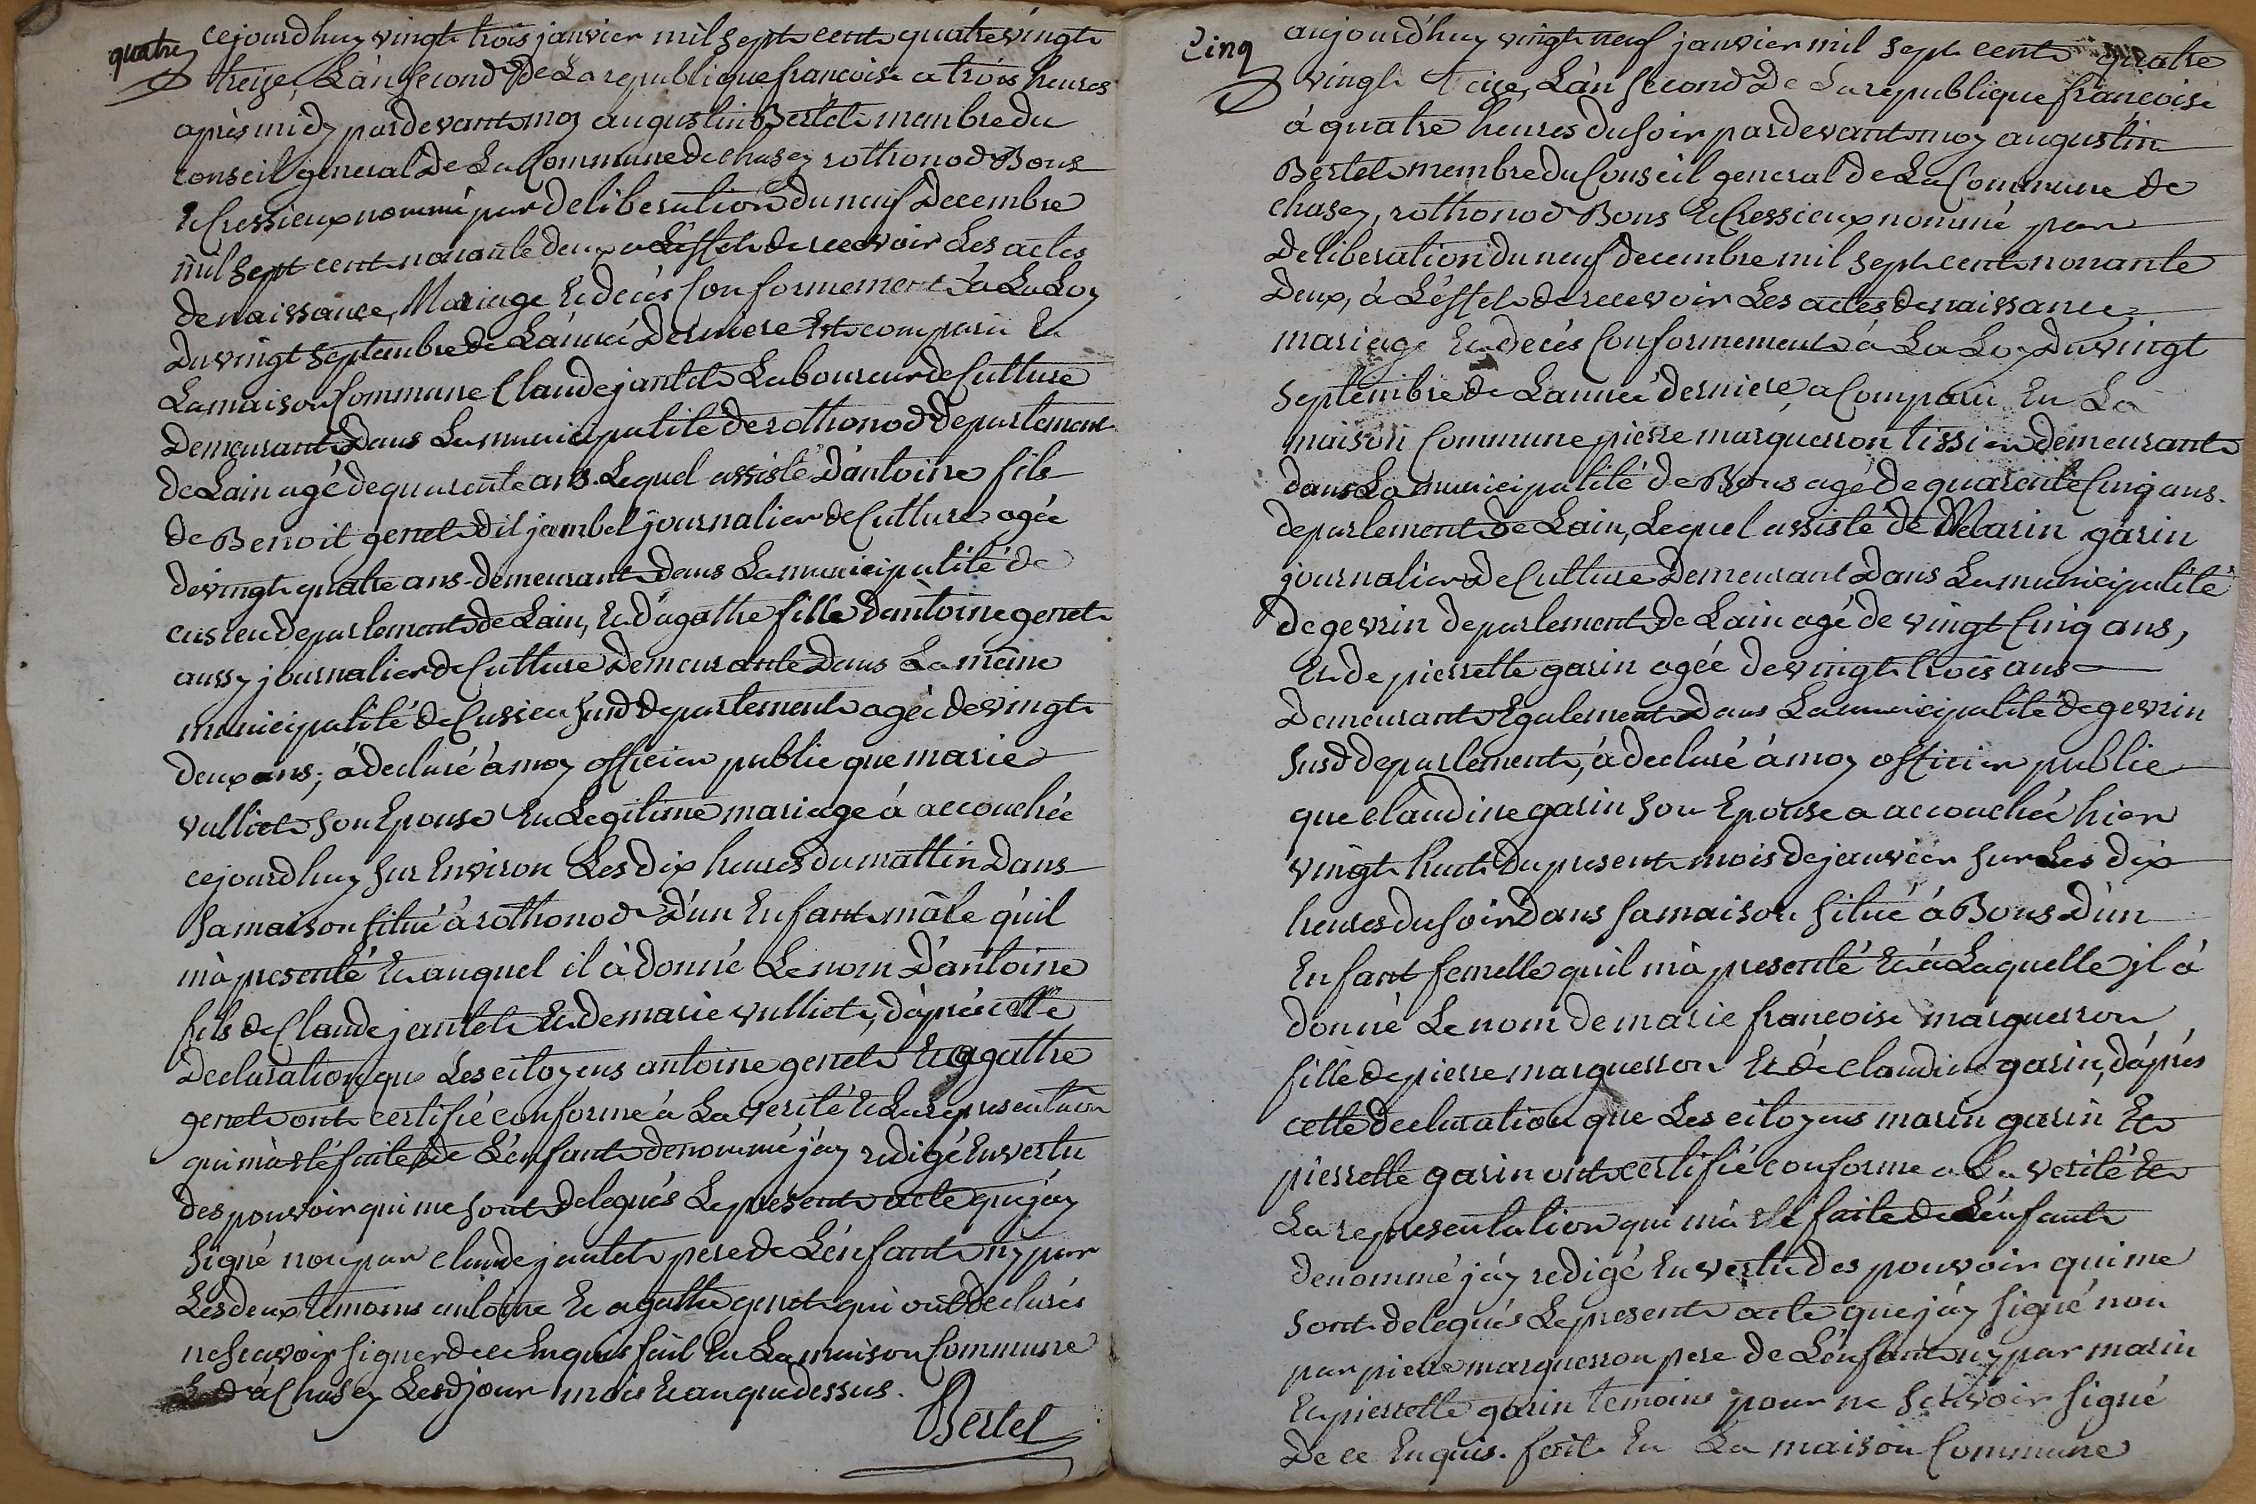 quatre
cejourdhuy vingt trois janvier mil sept cent quatre vingt
treize, L'an second de La republique francoise a trois heures
après midy pardevant moy augustin Bertet membre du
conseil general de La Commune de chasey rothonod Bons
Et Cressieux nommé par deliberation du neuf Decembre
mil sept cent nonante deux a L'effet de recevoir Les actes
de naissance, Mariage Et decès Conformement à La Loy
du vingt septembre de L'année Derniere Est comparu En
La maison Commune Claude jantet Laboureur de Culture
Demeurant Dans La municipalité de rothonod departement
de Lain agé de quarente ans Lequel assisté D'antoine fils
de Benoit genet dit jambel journalier de Culture agée
de vingt quatre ans demeurant Dans La municipalité de
cusieu departement de Lain, Et d'agathe fille d'antoine genet
aussy journalier de Culture Demeurante Dans La même
municipalité de Cusieu susd departement agée de vingt
deux ans; à declaré à moy officier public que marie
vulliet son Epouse En Legitime mariage à accouchée
cejourdhuy sur Environ Les dix heures du mattin Dans
sa maison situé à rothonod D'un Enfant mâle qu'il
m'à presenté Et auquel il à donné Le nom D'antoine
fils de Claude jantet Et de marie vulliet, d'après cette
Declaration que Les citoyens antoine genet Et agathe
genet ont certifié conforme à La verité Et La representation
qui m'a été faite de L'enfant denommé j'ay redigé En vertu
des pouvoir qui me sont delegués Le present acte que j'ay
signé non par claude jantet pere de L'enfant ny par
Les deux temoins antoine Et agathe genet qui ont declarés
ne scavoir signer de ce Enquis fait En La maison Commune
à Chasey Lesd jour mois Et an que dessus.
Bertet
Cinq
aujourd'huy vingt neuf janvier mil sept cent quatre
vingt treize, L'an second de La republique francoise
à quatre heures du soir pardevant moy augustin
Bertet membre du Conseil general de La Commune de
chasey, rothonod Bons Et Cressieux nommé par
Deliberation du neuf decembre mil sept cent nonante
Deux, à L'effet de recevoir Les actes de naissance
mariage Et decès Conformement à La Loy Du vingt
septembre de L'année derniere, a Comparu En La
maison Commune pierre marguerron tissier demeurant
dans La municipalité de Bons agé de quarente Cinq ans.
departement de Lain, Lequel assisté de Marin garin
journalier de Culture Demeurant Dans La municipalité
de gevrin departement de Lain agé de vingt Cinq ans,
Et de pierrette garin agée de vingt trois ans
Demeurant Egalement Dans La municipalité de gevrin
susd departement, à declaré à moy officier public
que claudine garin son Epouse a accouchée hier
vingt huit du present mois de janvier sur Les dix
heures du soir dans sa maison situé à Bons D'un
Enfant femelle qu'il m'à presenté Et à Laquelle jl à
donné Le nom de marie francoise marguerron
fille de pierre marguerron Et de claudine garin, d'après
cette declaration que Les citoyens marin garin Et
pierrette garin ont certifié conforme a La verité Et
La representation qui m'a été faite de L'enfant
denommé j'ay redigé En vertu des pouvoir qui me
sont delegués Le present acte que j'ay signé non
par pierre marguerron pere de L'enfant ny par marin
Et pierrette garin temoins pour ne scavoir signé
De ce Enquis. fait En La maison Commune